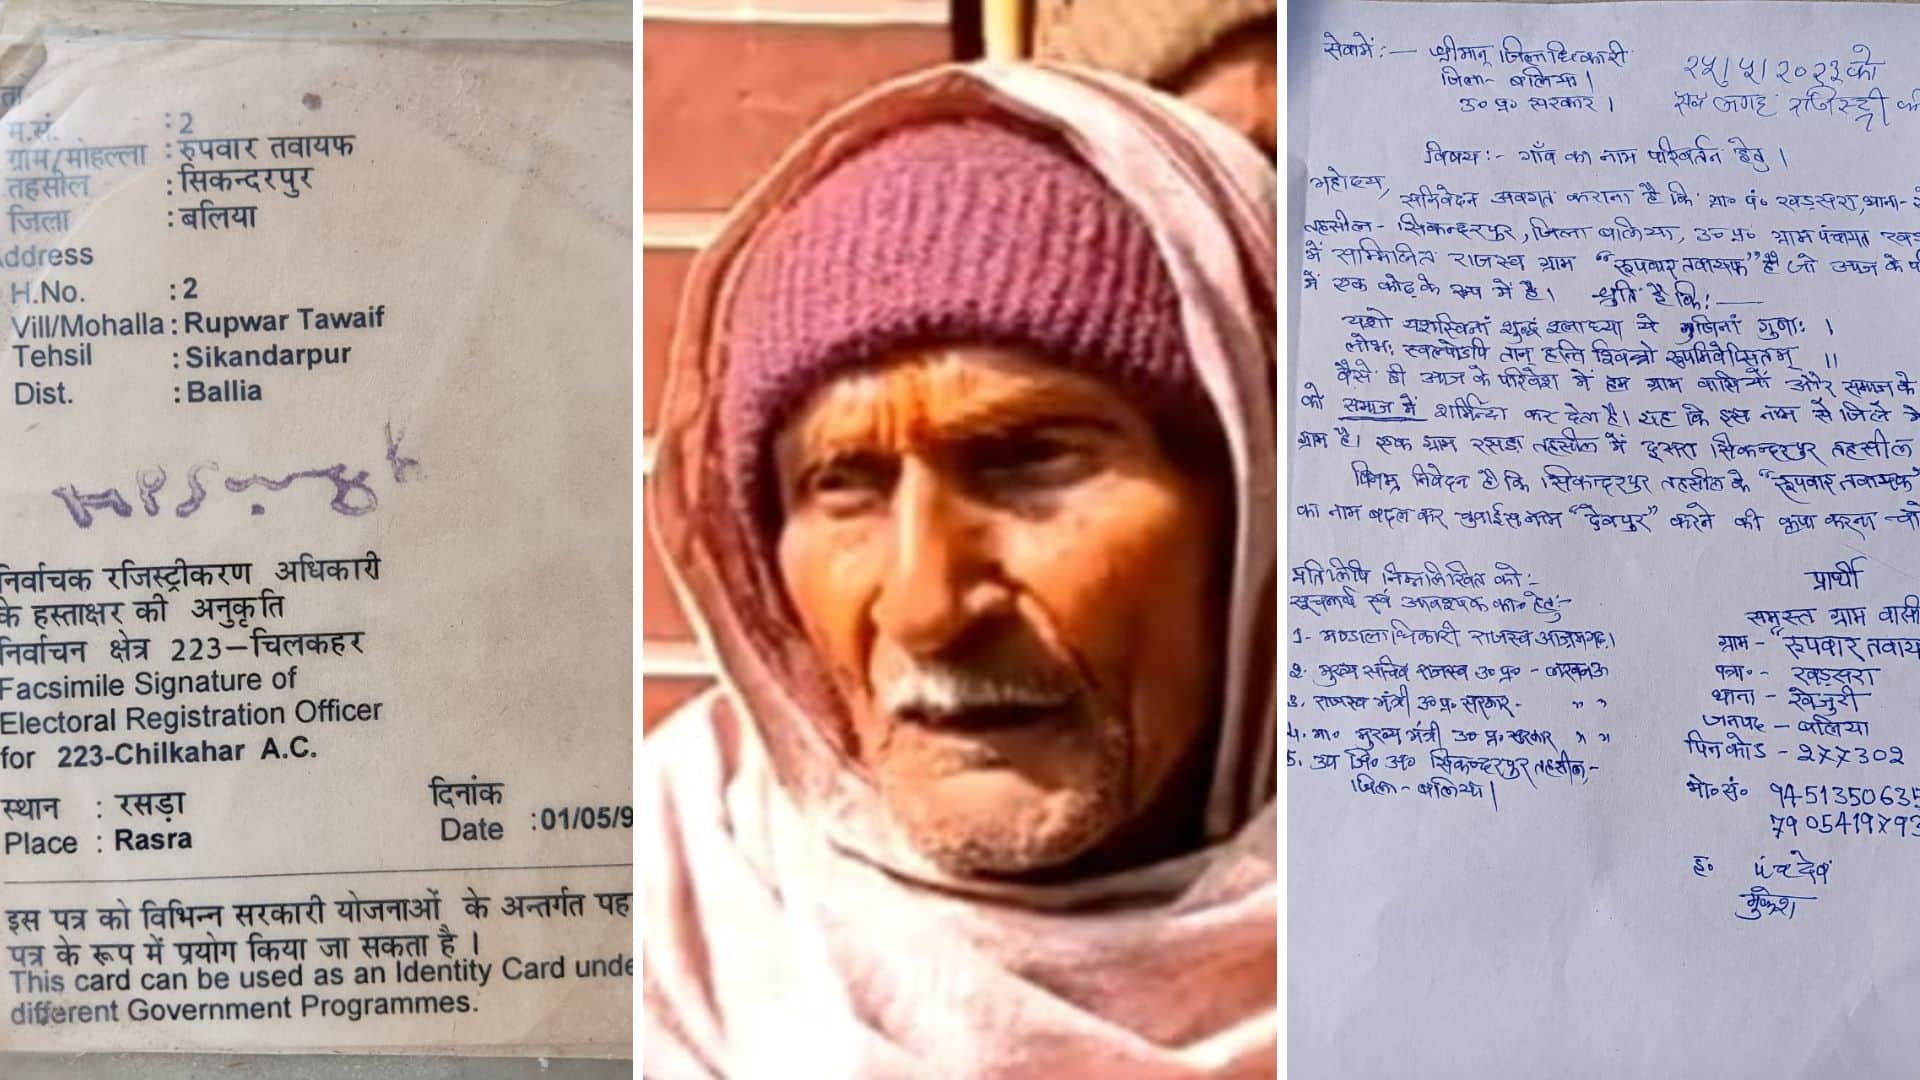 ता
म.सं. : 2
ग्राम/मोहल्ला : रुपवार तवायफ
तहसील : सिकन्दरपुर
जिला : बलिया
ddress
H.No. : 2
Vill/Mohalla : Rupwar Tawaif
Tehsil : Sikandarpur
Dist. : Ballia
निर्वाचक रजिस्ट्रीकरण अधिकारी
के हस्ताक्षर की अनुकृति
निर्वाचन क्षेत्र 223–चिलकहर
Facsimile Signature of
Electoral Registration Officer
for 223-Chilkahar A.C.
स्थान : रसड़ा
Place : Rasra
दिनांक
Date : 01/05/9
इस पत्र को विभिन्न सरकारी योजनाओं के अन्तर्गत पह
पत्र के रूप में प्रयोग किया जा सकता है ।
This card can be used as an Identity Card unde
different Government Programmes.
सेवामें :— श्रीमान् जिलाधिकारी
जिला- बलिया ।
उ० प्र० सरकार ।
२५/५/२०२३ को
सब जगह रजिस्ट्री की
विषय :- गाँव का नाम परिवर्तन हेतु ।
महोदय,
सविनिवेदन अवगत कराना है कि ग्रा० पं० खड़सरा, थाना-
तहसील - सिकन्दरपुर, जिला बलिया, उ० प्र० ग्राम पंचायत खड़
में सम्मिलित राजस्व ग्राम “रूपवार तवायफ” है जो आज के
में एक कोढ़ के रूप में है। श्रुति है कि :—
यशो यशस्विनां शुद्धं श्लाघ्या ये गुणिनां गुणाः ।
लोभः स्वल्पोऽपि तान् हन्ति श्वित्रो रूपमिवेप्सितम् ॥
वैसे ही आज के परिवेश में हम ग्राम वासियों और समाज के
को समाज में शर्मिन्दा कर देता है। यह कि इस नाम से जिले में
ग्राम है। एक ग्राम रसड़ा तहसील में दूसरा सिकन्दरपुर तहसील
विनम्र निवेदन है कि सिकन्दरपुर तहसील के “रूपवार तवायफ
का नाम बदल कर नाम “देवपुर” करने की कृपा करना
प्रतिलिपि निम्नलिखित को :-
सूचनार्थ एवं आवश्यक का० हेतु:-
1- मण्डलाधिकारी राजस्व आजमगढ़।
2. मुख्य सचिव राजस्व उ० प्र० - लखनऊ
3. राजस्व मंत्री उ० प्र० सरकार - " "
4. मा० मुख्य मंत्री उ० प्र० सरकार " "
5. उप जि० अ० सिकन्दरपुर तहसील,-
जिला - बलिया।
प्रार्थी
समस्त ग्राम वासी
ग्राम - “रूपवार तवाय
पत्रा० - खड़सरा
थाना - खेजुरी
जनपद - बलिया
पिन कोड - 277302
मो० सं० 9451350635
790541979
ह० पंचदेव
मुकेश